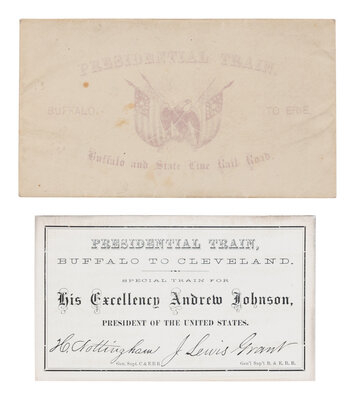 PRESIDENTIAL TRAIN,
BUFFALO, TO ERIE
Buffalo and State Line Rail Road.
PRESIDENTIAL TRAIN,
BUFFALO TO CLEVELAND.
SPECIAL TRAIN FOR
His Excellency Andrew Johnson,
PRESIDENT OF THE UNITED STATES.
H. Nottingham J. Lewis Grant
Gen. Supt. C & E R R Gen'l Sup't B. & E. R. R.